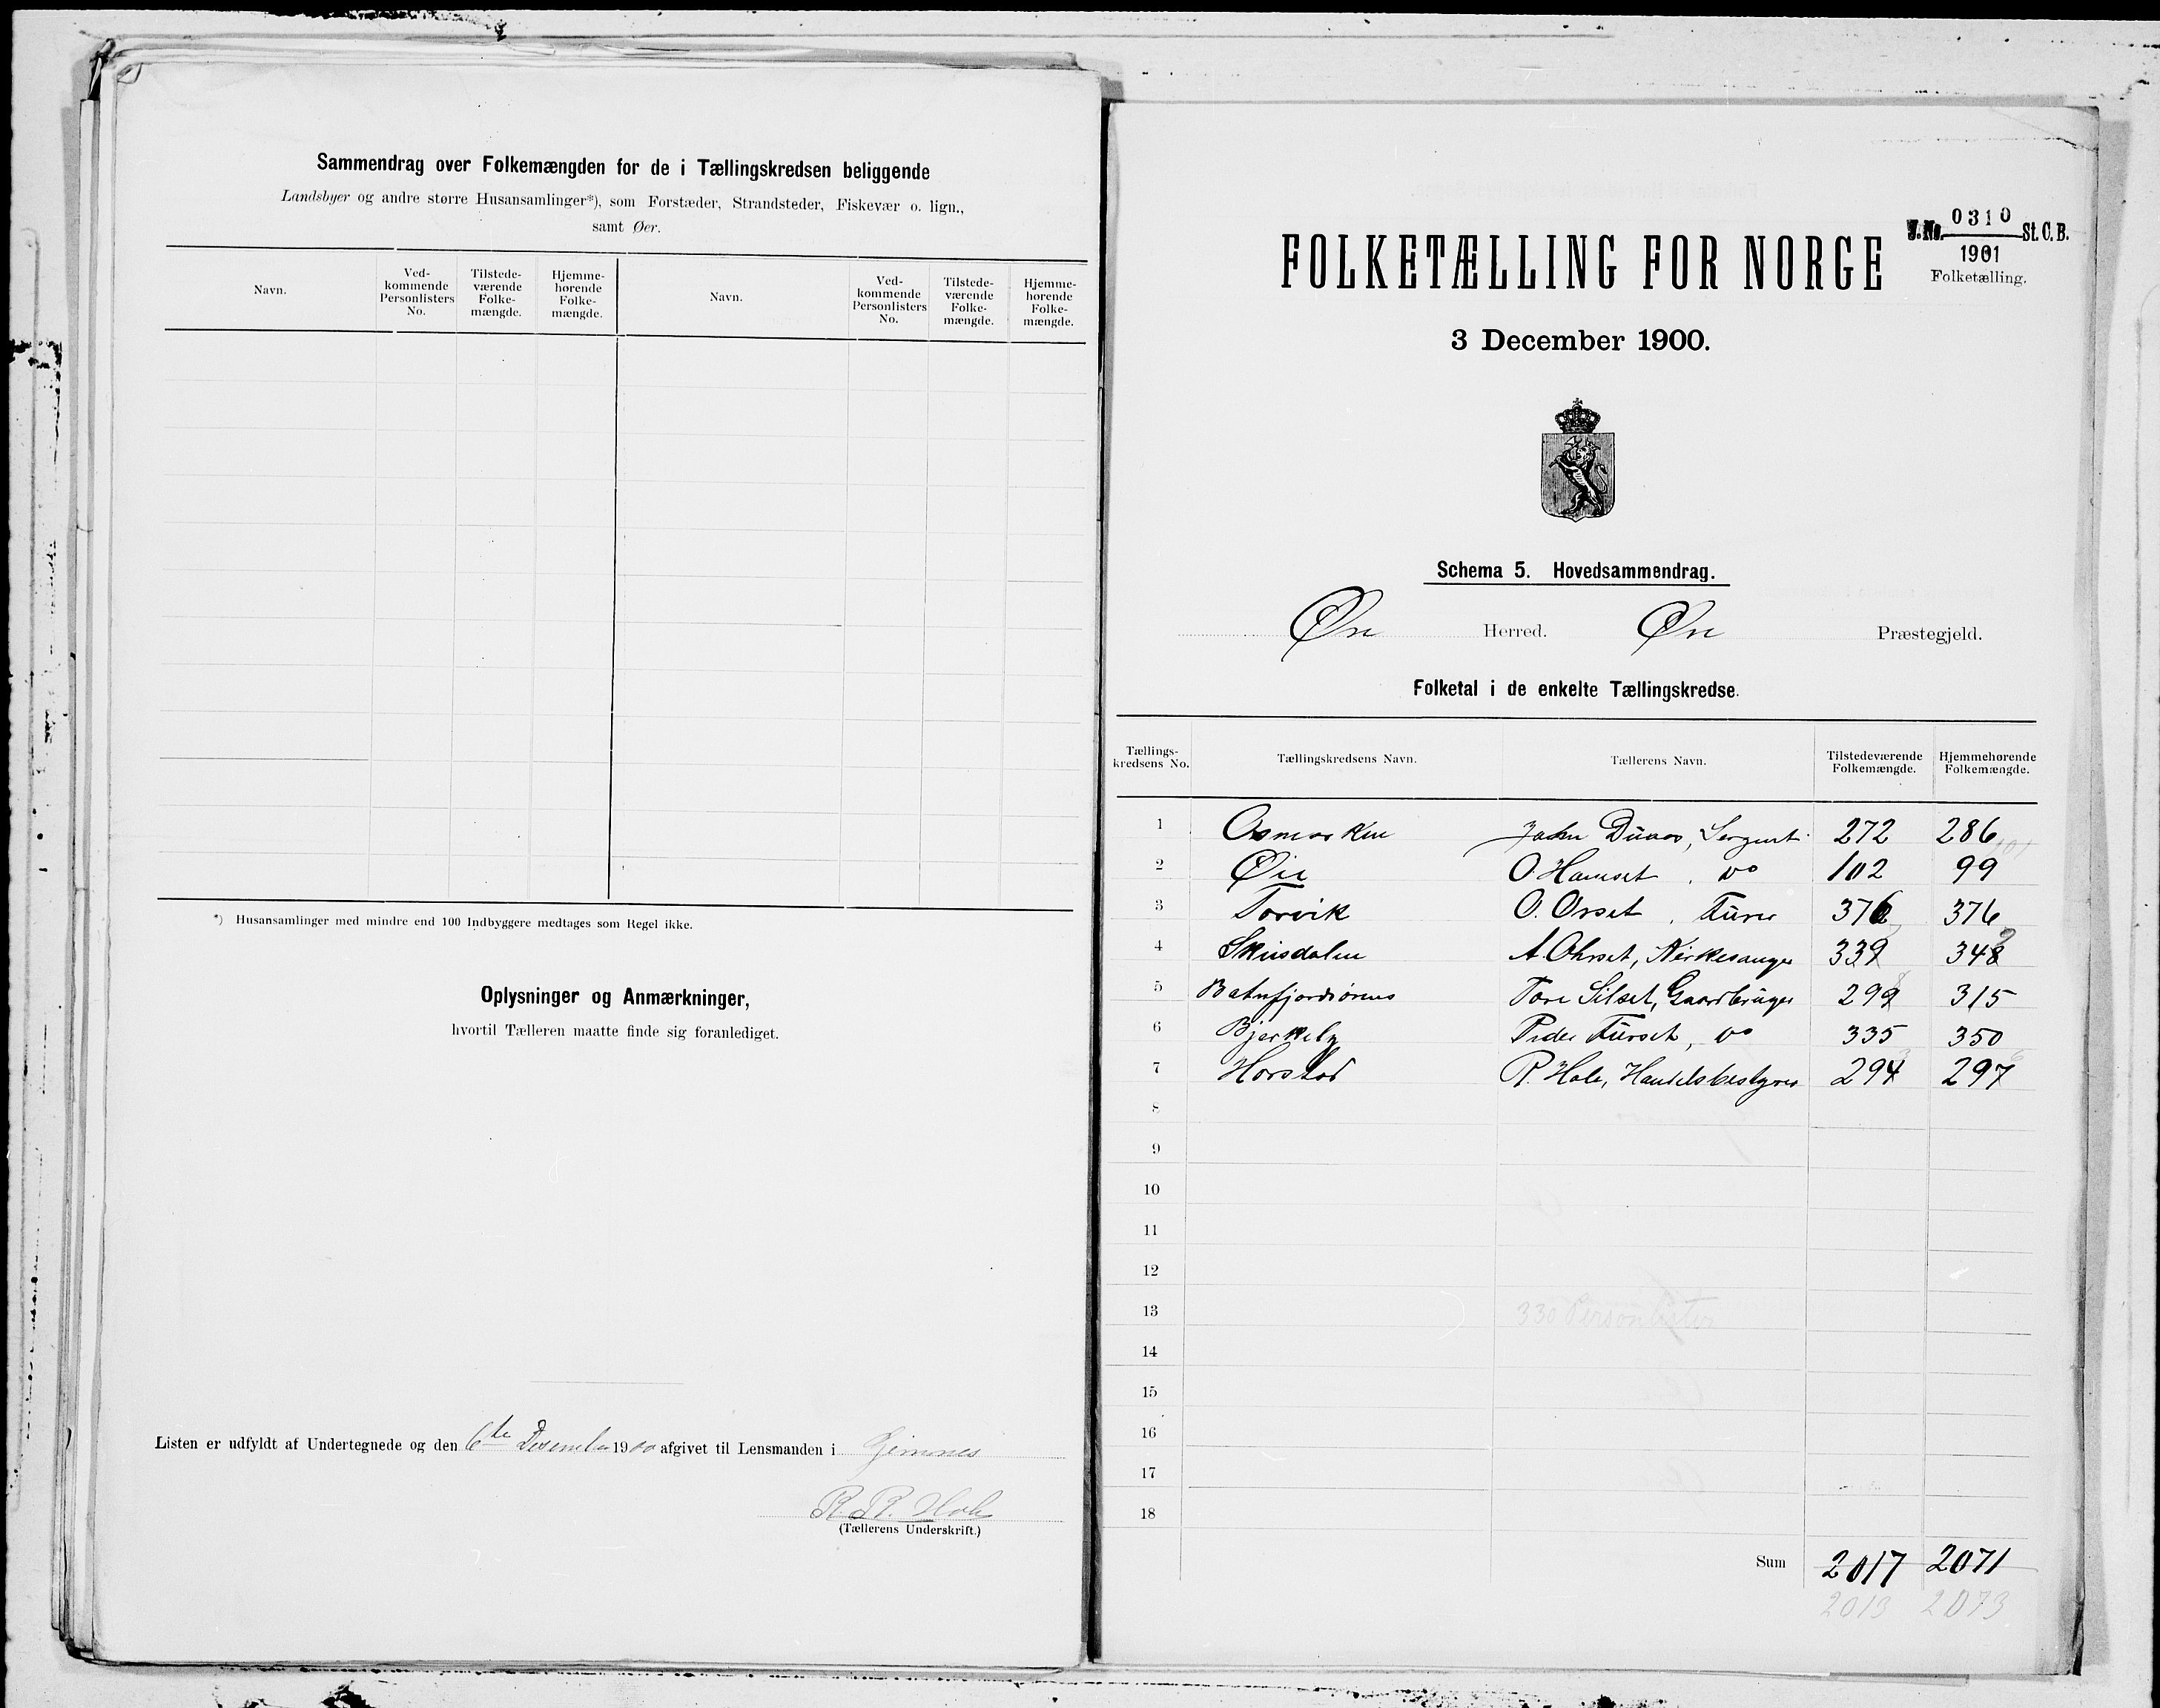 Sammendrag over Folkemængden for de i Tællingskredsen beliggende
Landsbyer og andre større Husansamlinger*), som Forstæder, Strandsteder, Fiskevær o. lign.,
samt Øer.
Navn. Ved-kommende Personlisters No. Tilstede-værende Folke-mængde. Hjemme-hørende Folke-mængde. Navn. Ved-kommende Personlisters No. Tilstede-værende Folke-mængde. Hjemme-hørende Folke-mængde.
*) Husansamlinger med mindre end 100 Indbyggere medtages som Regel ikke.
Oplysninger og Anmærkninger,
hvortil Tælleren maatte finde sig foranlediget.
Listen er udfyldt af Undertegnede og den 6te Desember 1900 afgivet til Lensmanden i Gimnes
R. R. Hole
(Tællerens Underskrift.)
J. No. 0310 St. C. B.
1901
Folketælling.
FOLKETÆLLING FOR NORGE
3 December 1900.
Schema 5. Hovedsammendrag.
Øre Herred. Øre Præstegjeld.
Folketal i de enkelte Tællingskredse.
Tællings-kredsens No. Tællingskredsens Navn. Tællerens Navn. Tilstedeværende Folkemængde. Hjemmehørende Folkemængde.
1 Osmarken John Sergent 272 286
2 Øre O. Hamset, do 102 99
3 Torvik O. Orset, Furer 376 376
4 Skeisdalen A. Ohrset, Kirkesanger 339 348
5 Batnfjordsørens Tore Silset, Gaardbruger 299 315
6 Bjerkely Peder Furset, do 335 350
7 Horstad R. Hole, Handelsbestyrer 294 297
8
9
10
11
12
13 330 Personlister
14
15
16
17
18
Sum 2017 2071
2013 2073